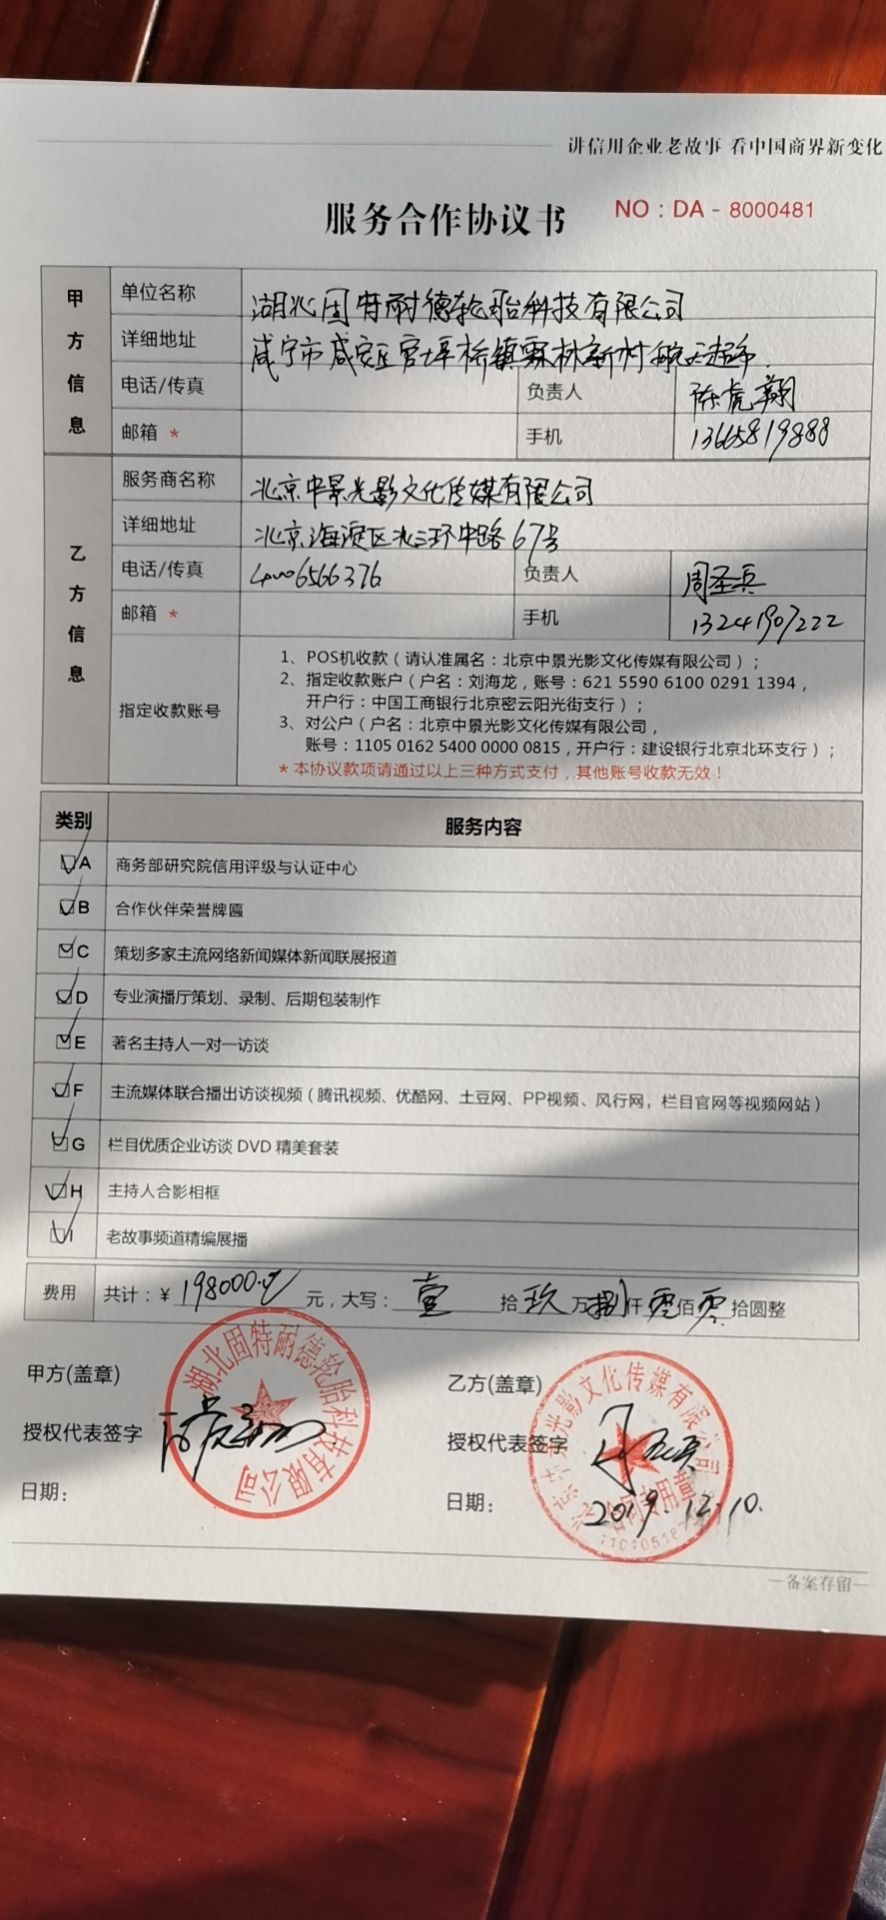 讲信用企业老故事 看中国商界新变化
服务合作协议书
NO：DA - 8000481
甲方信息
单位名称 湖北固特耐德轮胎科技有限公司
详细地址 咸宁市咸安区官埠桥镇霖林新村航天超市
电话/传真 负责人 陈虎翔
邮箱 * 手机 13665819888
乙方信息
服务商名称 北京中景光影文化传媒有限公司
详细地址 北京海淀区北三环中路67号
电话/传真 4006566376 负责人 周圣兵
邮箱 * 手机 13241907222
指定收款账号
1、POS机收款（请认准属名：北京中景光影文化传媒有限公司）；
2、指定收款账户（户名：刘海龙，账号：621 5590 6100 0291 1394，
开户行：中国工商银行北京密云阳光街支行）；
3、对公户（户名：北京中景光影文化传媒有限公司，
账号：1105 0162 5400 0000 0815，开户行：建设银行北京北环支行）；
* 本协议款项请通过以上三种方式支付，其他账号收款无效！
类别 服务内容
A 商务部研究院信用评级与认证中心
B 合作伙伴荣誉牌匾
C 策划多家主流网络新闻媒体新闻联展报道
D 专业演播厅策划、录制、后期包装制作
E 著名主持人一对一访谈
F 主流媒体联合播出访谈视频（腾讯视频、优酷网、土豆网、PP视频、风行网，栏目官网等视频网站）
G 栏目优质企业访谈 DVD 精美套装
H 主持人合影相框
I 老故事频道精编展播
费用 共计：￥198000.00元，大写：壹拾玖万捌仟零佰零拾圆整
甲方(盖章)
湖北固特耐德轮胎科技有限公司
授权代表签字 陈虎翔
日期：
乙方(盖章)
北京中景光影文化传媒有限公司
合同专用章
授权代表签字 周圣兵
日期： 2019.12.10.
—备案存留—